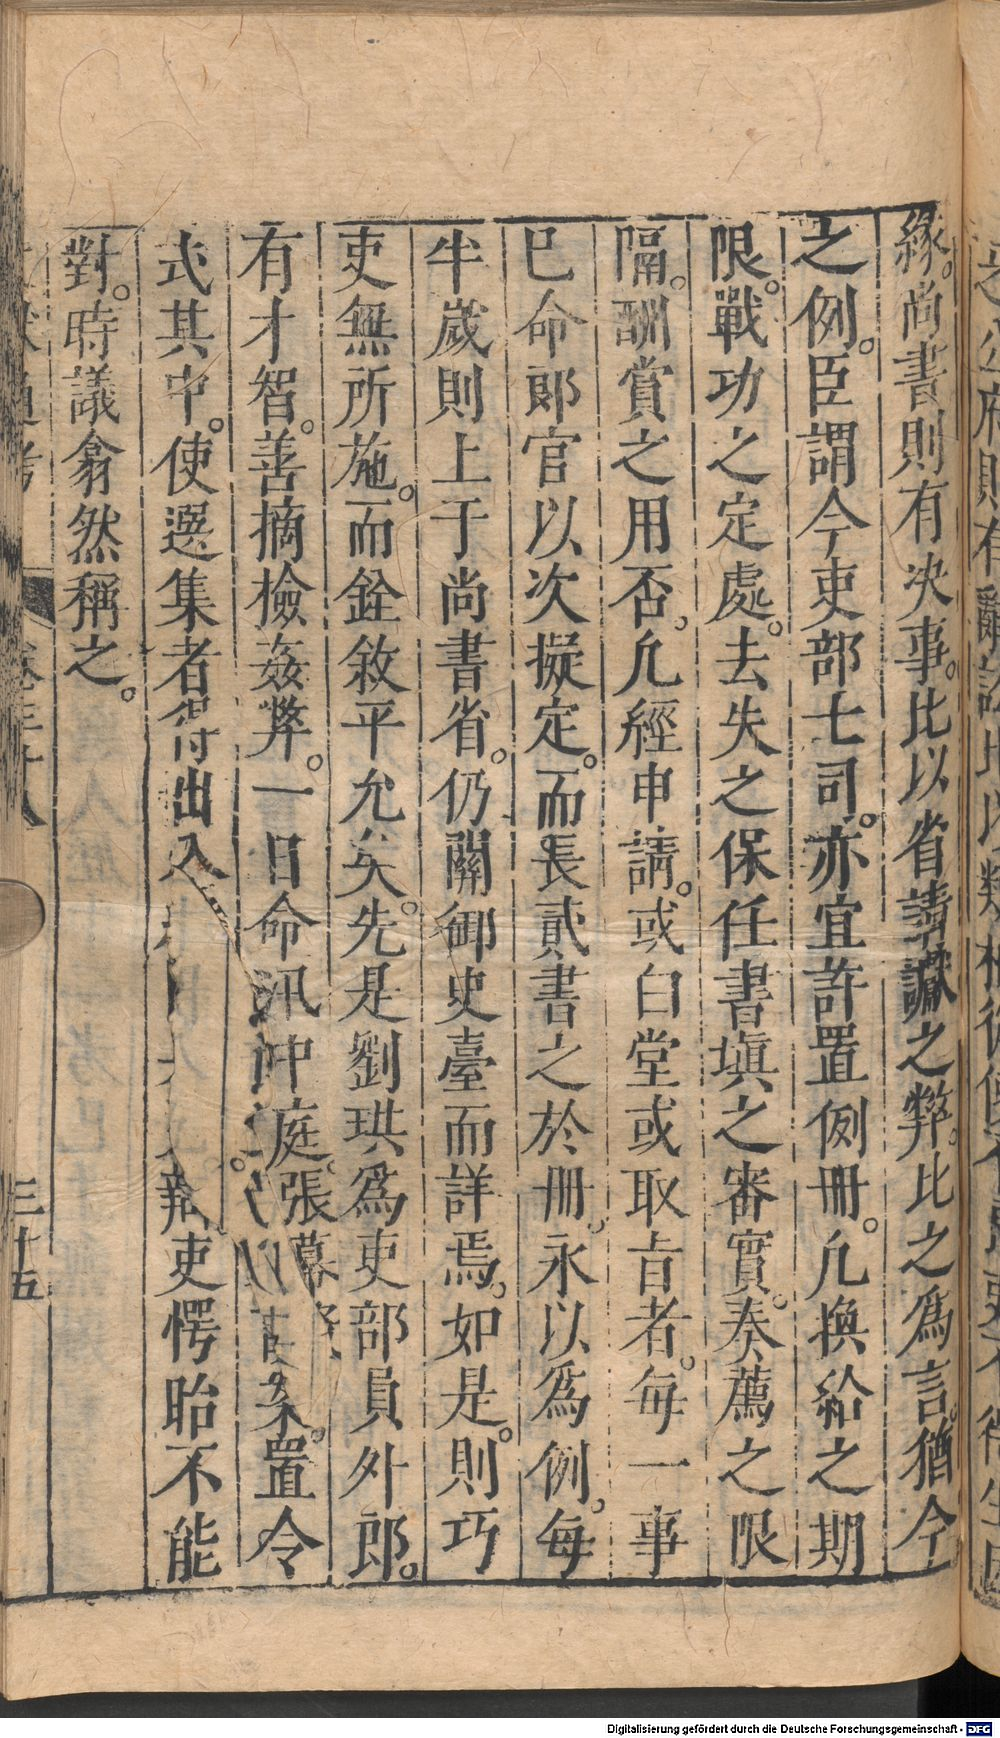 緣。尚書則有决事。比以省請讞之弊。比之爲言。猶今
之例。臣謂今吏部七司。亦宜許置例冊。凡換給之期
限。戰功之定處。去失之保任書塡之審實。奏薦之限
隔。酬賞之用否。凡經申請。或白堂或取㫖者。每一事
已命郎官以次擬定。而長貳書之於冊。永以爲例。每
半歲則上于尚書省。仍關御史臺而詳焉。如是。則巧
吏無所施。而銓敘平允矣。先是劉珙爲吏部員外郎。
有才智。善摘檢姦弊。一日命汛冲庭張幕案。置令
式其中。使選集者得出入辯吏愕眙不能
對。時議翕然稱之。
三十五
Digitalisierung gefördert durch die Deutsche Forschungsgemeinschaft - DFG